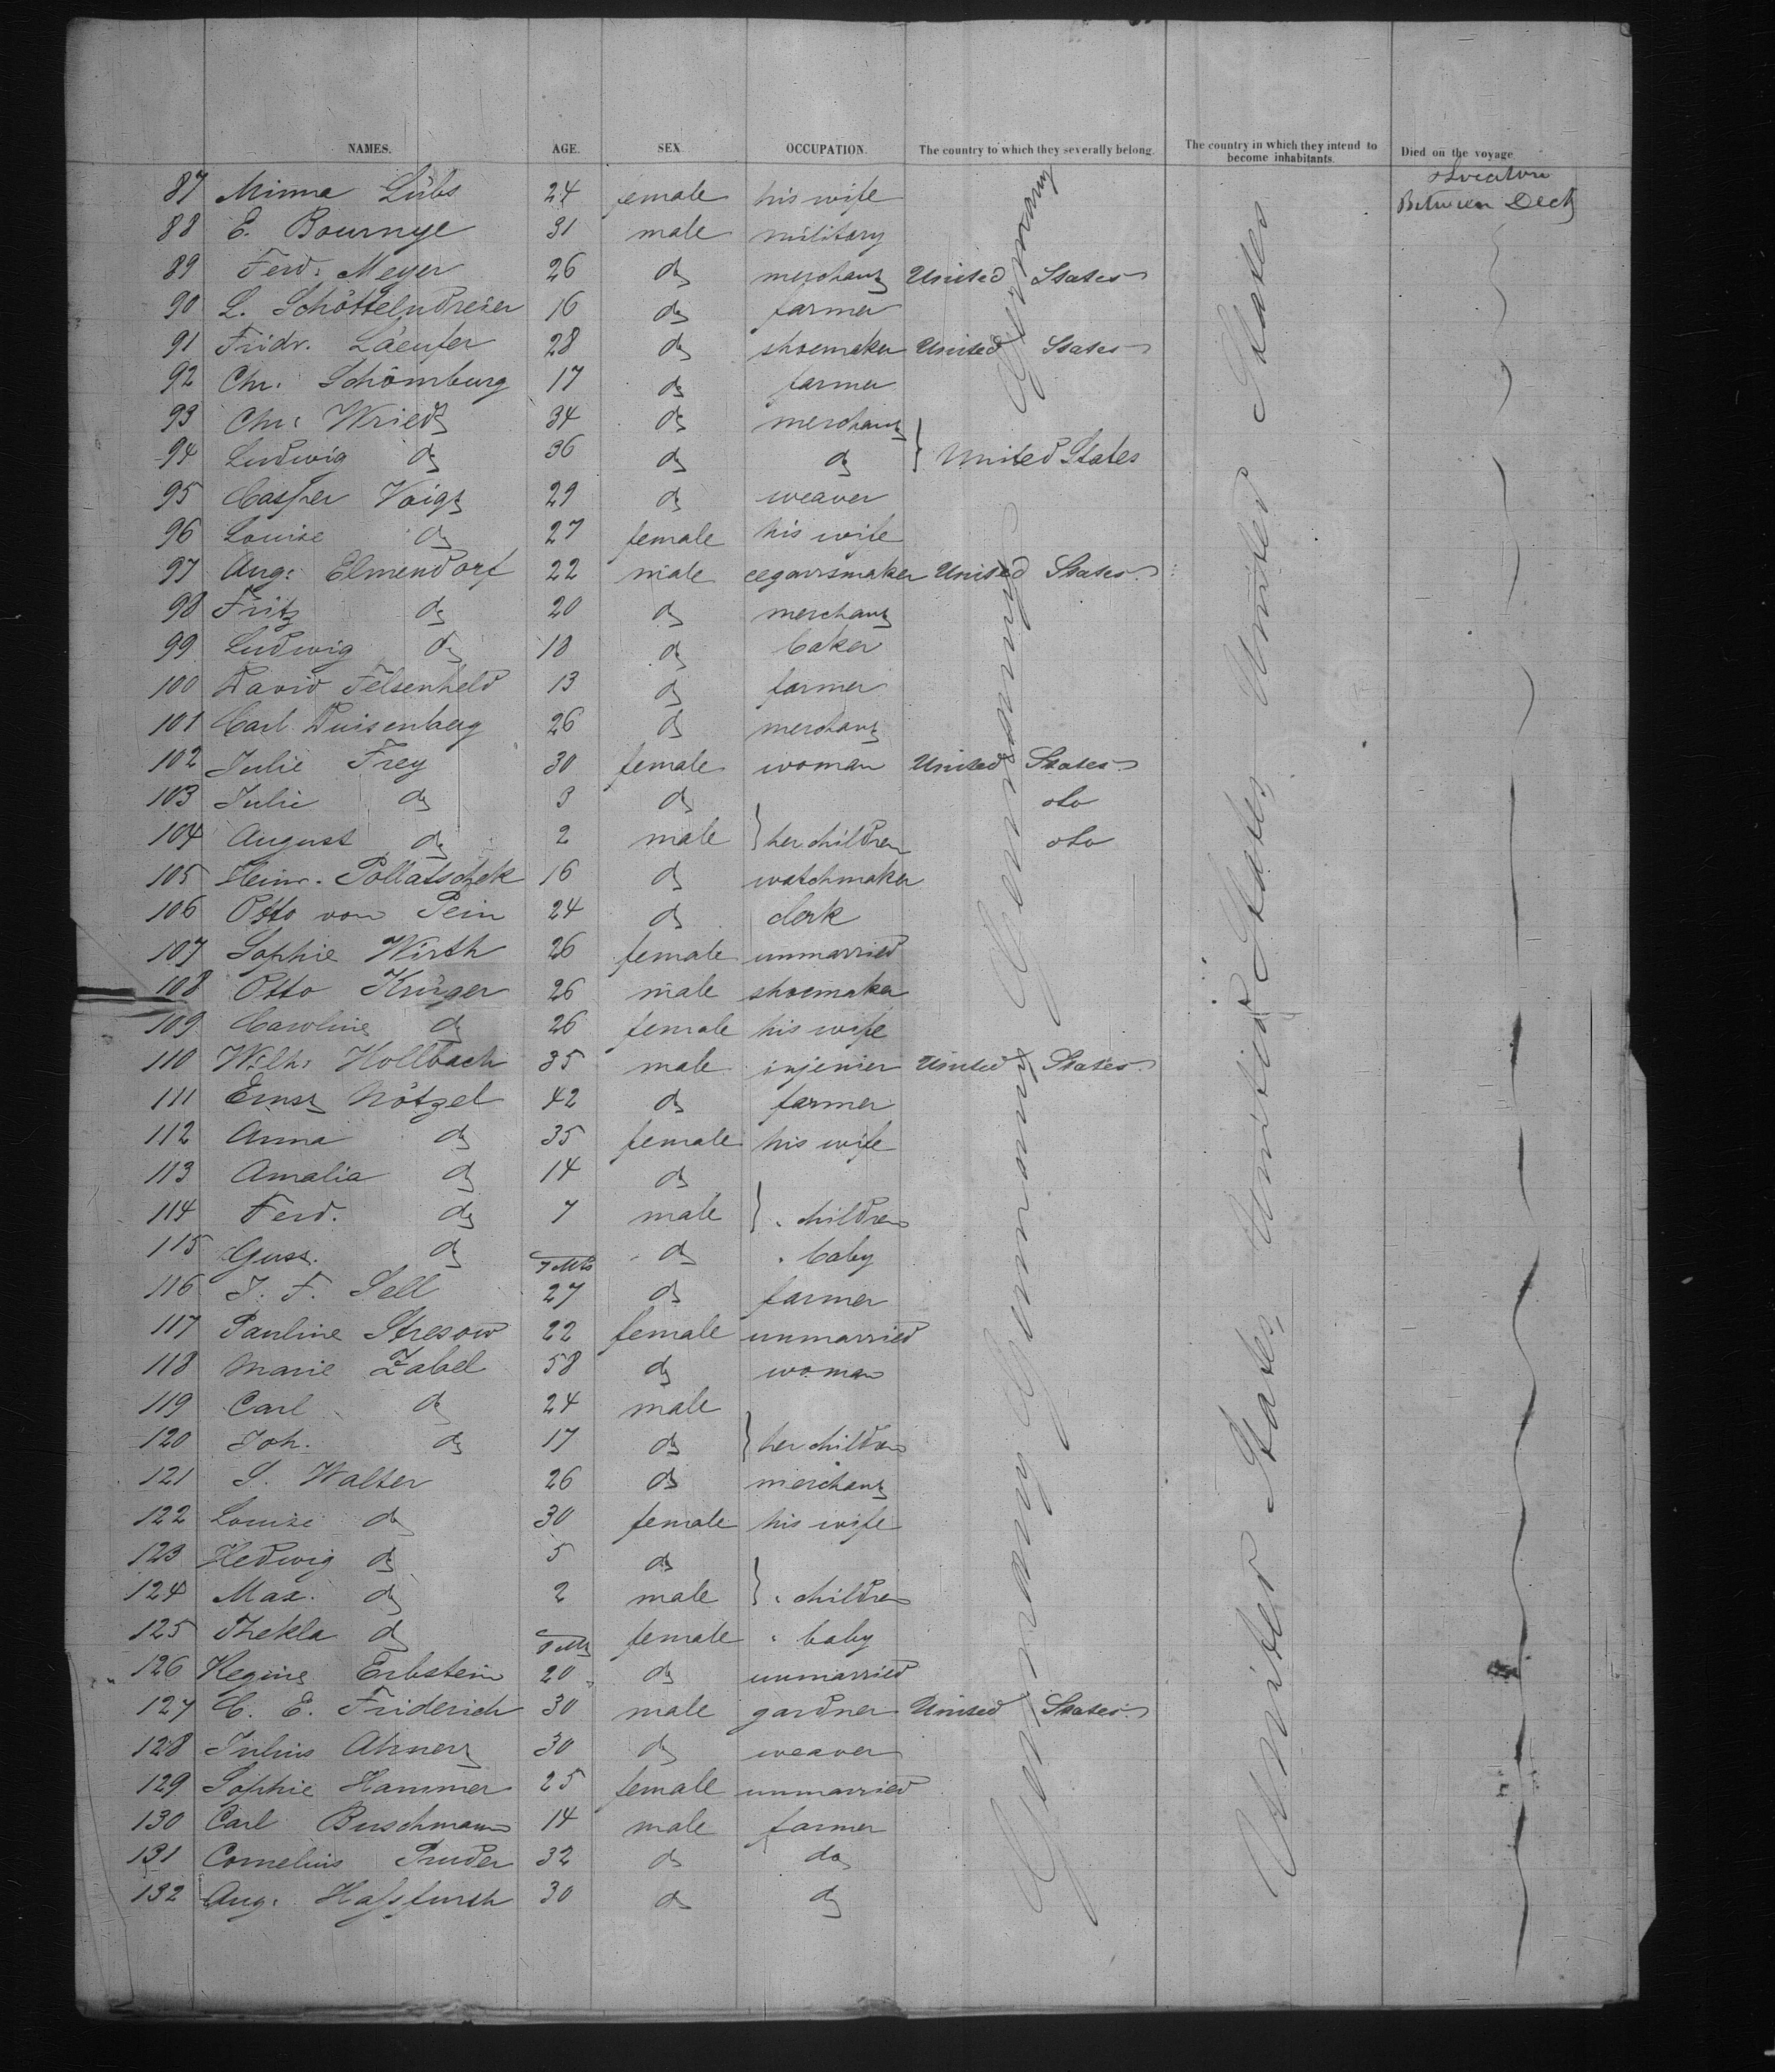 NAMES. AGE. SEX. OCCUPATION. The country to which they severally belong. The country in which they intend to become inhabitants. Died on the voyage
Location
Between Deck
87 Minna Lübs 24 female his wife
88 E. Bournye 31 male military
89 Ferd. Meyer 26 do merchant United States
90 L. Schöttelndreier 16 do farmer
91 Fridr. Läenfer 28 do shoemaker United States
92 Chr. Schömburg 17 do farmer
93 Chr: Wriedt 34 do merchant
94 Ludwig do 36 do do } United States
95 Casper Voigt 29 do weaver
96 Louise do 27 female his wife
97 Aug: Elmendorf 22 male cegarrsmaker United States
98 Fritz do 20 do merchant
99 Ludwig do 18 do baker
100 David Felsenheld 13 do farmer
101 Carl Duisenberg 26 do merchant
102 Julie Frey 30 female woman United States
103 Julie do 3 do do
104 August do 2 male } her children do
105 Heinr. Pollatschek 16 do watchmaker
106 Otto von Pein 24 do clerk
107 Sophie Wirth 26 female unmarried
108 Otto Krüger 26 male shoemaker
109 Caroline do 26 female his wife
110 Wilh: Hollbach 35 male injenier United States
111 Ernst Nötzel 42 do farmer
112 Anna do 35 female his wife
113 Amalia do 14 do
114 Ferd. do 7 male } " children
115 Gust. do 7 Mts do " baby
116 J. F. Sell 27 do farmer
117 Pauline Stresow 22 female unmarried
118 Marie Zabel 58 do woman
119 Carl do 24 male
120 Joh. do 17 do } her children
121 S. Walter 26 do merchant
122 Louise do 30 female his wife
123 Hedwig do 5 do
124 Max. do 2 male } " children
125 Thekla do female " baby
126 Regine Erbstein 20 do unmarried
127 C. E. Friderich 30 male gardner United States
128 Julius Ahnert 30 do weaver
129 Sophie Hammer 25 female unmarried
130 Carl Buschmann 14 male farmer
131 Cornelius Pruder 32 do do
132 Aug: Hassfurth 30 do do
Germany Germany Germany Germany
United States, United States, United States